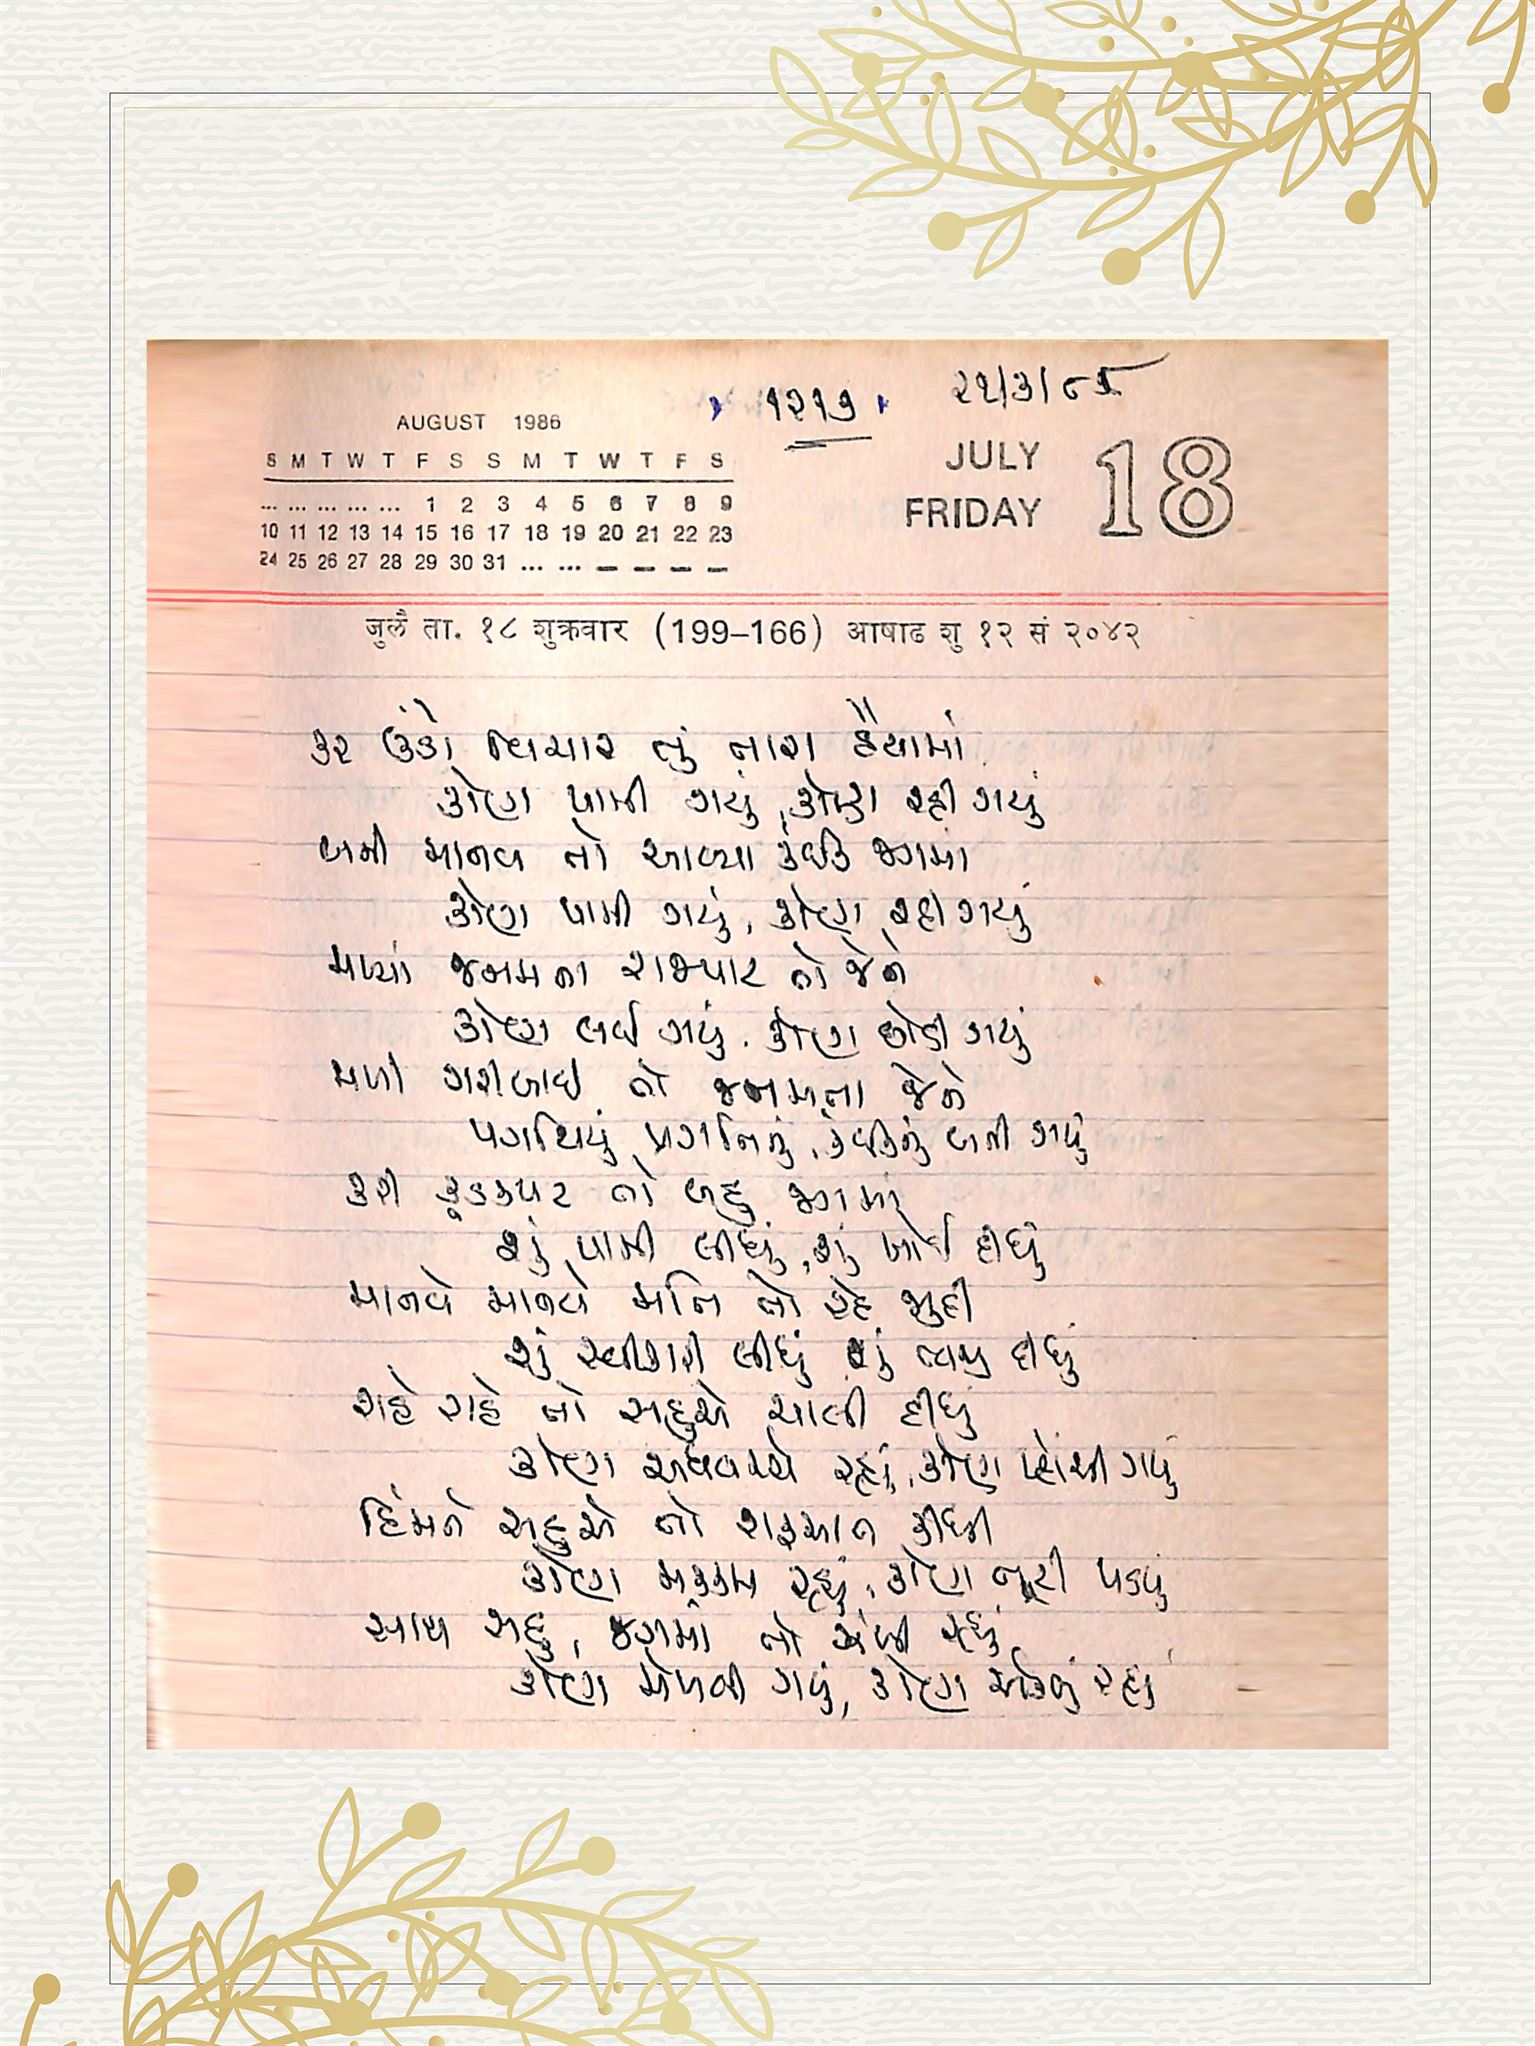 ૧૨૧૭
AUGUST 1986
S M T W T F S S M T W T F S
... ... ... ... ... 1 2 3 4 5 6 7 8 9
10 11 12 13 14 15 16 17 18 19 20 21 22 23
24 25 26 27 28 29 30 31 ... ... — — — —
JULY
FRIDAY
18
जुलै ता. १८ शुक्रवार (199–166) आषाढ शु १२ सं २०४२
કર ઉંડો વિચાર તું તારા હૈયામાં
કોણ પામી ગયું, કોણ રહી ગયું
બની માનવ તો આવ્યા કંઈક જગમાં
કોણ પામી ગયું, કોણ રહી ગયું
મળ્યાં જનમતા રાજપાટ તો જેને
કોણ લઈ ગયું. કોણ છોડી ગયું
મળી ગરીબાઈ તો જનમતા જેને
પગથિયું પ્રગતિનું, કંઈકનું બની ગયું
કરી કૂડકપટ તો બહુ જગમાં
શું પામી લીધું, શું ખોઈ દીધું
માનવે માનવે મતિ તો રહે જુદી
શું સ્વીકારી લીધું શું ત્યજી દીધું
રાહે રાહે તો સહુએ ચાલી દીધું
કોણ અધવચ્ચે રહ્યું, કોણ પ્હોંચી ગયું
હિંમતે સહુએ તો શરૂઆત કીધી
કોણ મક્કમ રહ્યું, કોણ તૂટી પડ્યું
સાથ સહુ, જગમાં તો ઝંખી રહ્યું
કોણ મેળવી ગયું, કોણ એકલું રહ્યું